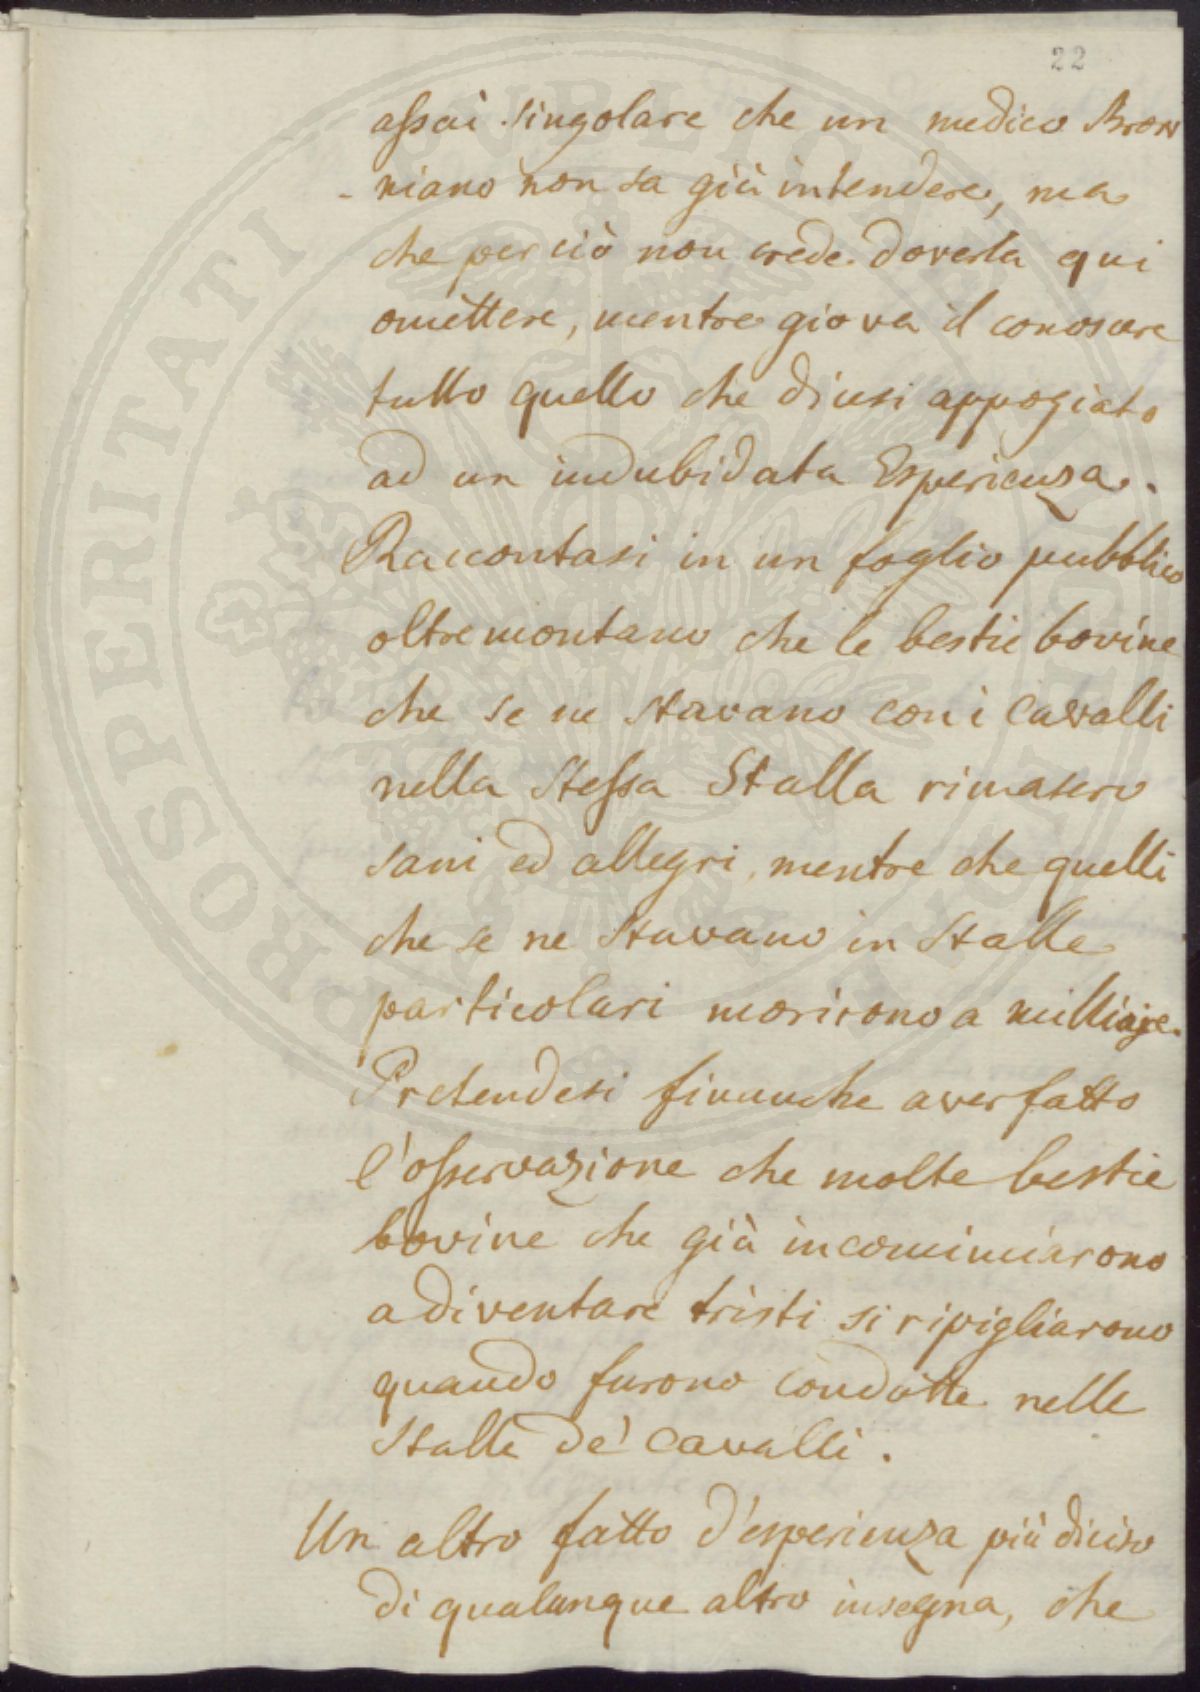 22
assai singolare che un medico Brow
- niano non sa già intendere, ma
che per ciò non crede doverla qui
omettere, mentre giova il conoscere
tutto quello che dicesi appogiato
ad un indubidata Esperienza.
Raccontasi in un foglio pubblico
oltremontano che le bestie bovine
che se ne stavano con i cavalli
nella stessa Stalla rimasero
sani ed allegri, mentre che quelli
che se ne stavano in stalle
particolari morirono a milliaje.
Pretendesi finanche aver fatto
l'osservazione che molte bestie
bovine che già incominciarono
a diventare tristi si ripigliarono
quando furono condotte nelle
stalle de' cavalli.
Un altro fatto d'esperienza più diciso
di qualunque altro insegna, che
PUBLICAE
PROSPERITATI